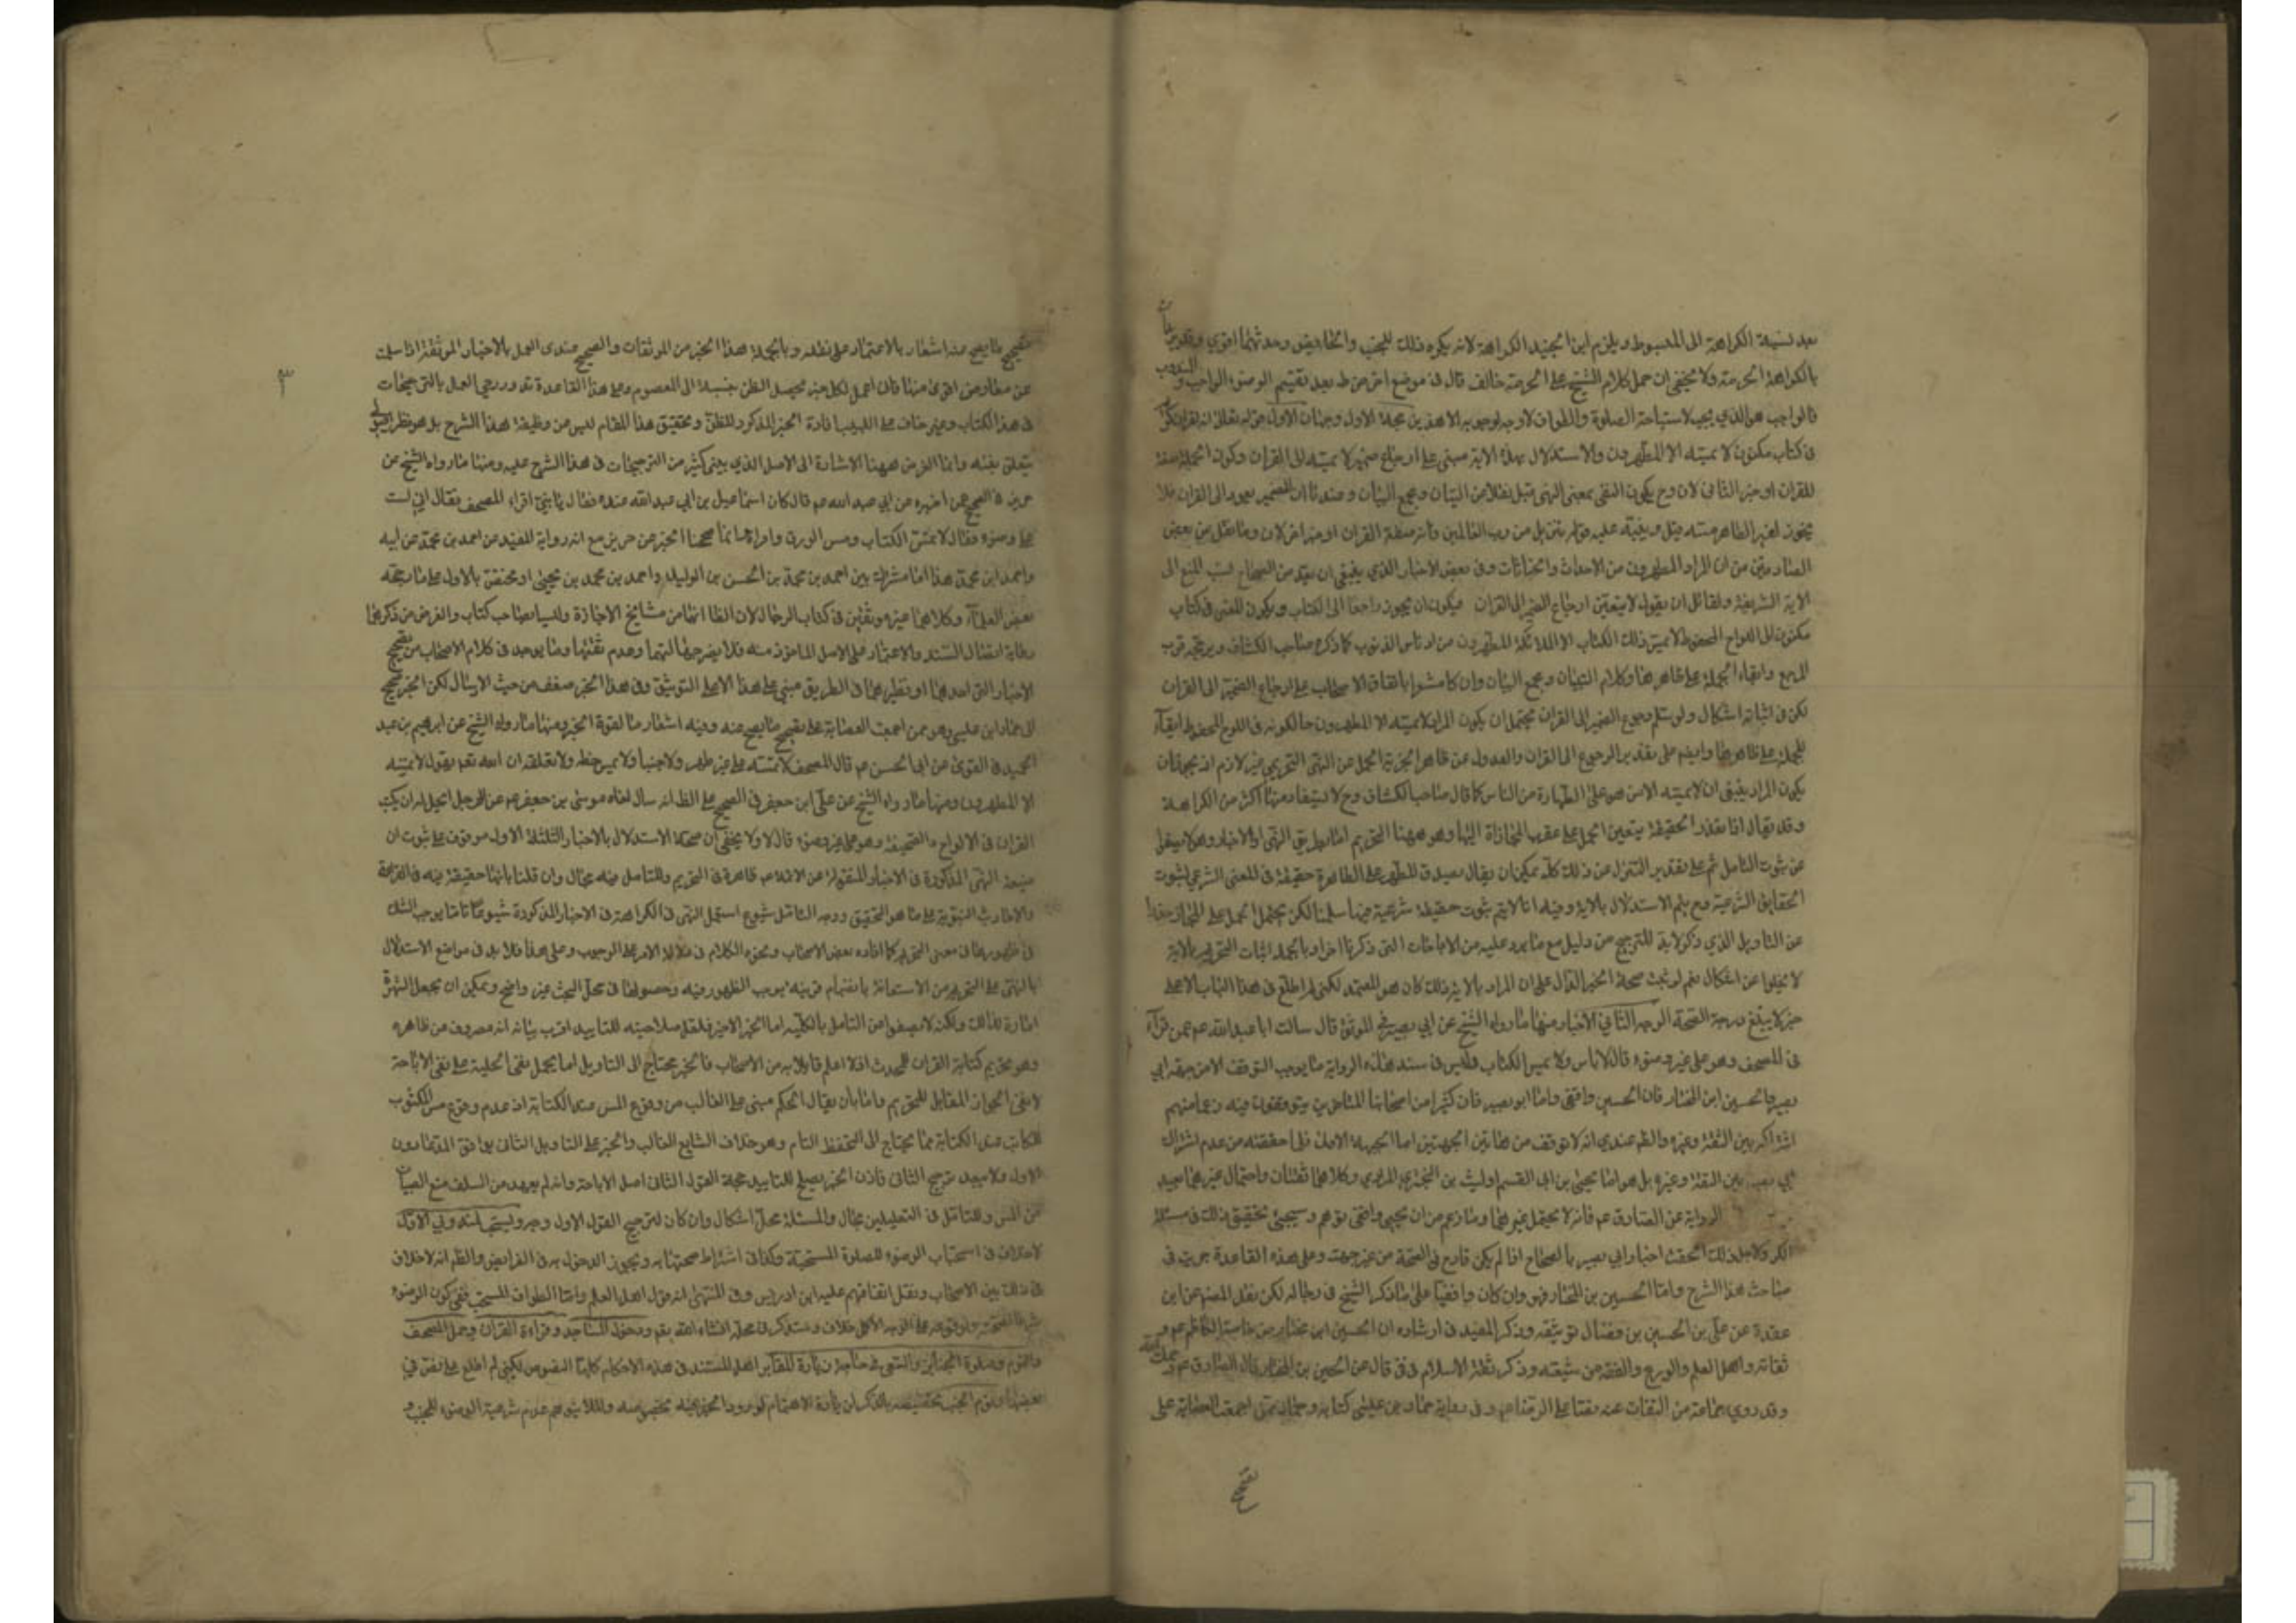 بعد نسبة الكراهة الى المبسوط ويلزم ابن الجنيد الكراهة لانه يكره ذلك للجنب والحائض وحدثهما اقوى
بالكراهة الحرمة ولا يخفى ان حمل كلام الشيخ على الحرمة خالف قال في موضع اخر من ط بعد تقسيم الوضوء الى واجب و
المندوب
فالواجب هو الذي يجب لاستباحة الصلوة والطواف لا وجه لوجوبه الا هذين حجة الاول وجهان الاول قوله تعالى انه لقران كريم
في كتاب مكنون لا يمسه الا المطهرون والاستدلال بهذه الاية مبني على ارجاع ضمير لا يمسه الى القران وكون الجملة صفة
للقران او خبر الثاني لان وح يكون النفي بمعنى النهي قبل نقلا من التبيان ومجمع البيان وعندنا ان الضمير يعود الى القران فلا
يجوز لغير الطاهر مسه قيل وينبه عليه قوله تنزيل من رب العالمين فانه صفة القران او خبر اخر لان وما نقل من بعض
الصادقين من ان المراد المطهرون من الاحداث والجنابات وفي بعض الاخبار الذي ينبغي ان يعد من الصحاح نسب المنع الى
الاية الشريفة ولقائل ان يقول لا يتعين ارجاع الضمير الى القران فيكون ان يجوز راجعا الى الكتاب ويكون المعنى في كتاب
مكنون اى اللوح المحفوظ لا يمس ذلك الكتاب الا الملائكة المطهرون من ادناس الذنوب كما ذكره صاحب الكشاف ويرجحه قرب
المرجع وابقاء الجملة على ظاهرها وكلام التبيان ومجمع البيان وان كا مشعرا باتفاق الاصحاب على ارجاع الضمير الى القران
لكن في اثباته اشكال ولو سلم رجوع الضمير الى القران يحتمل ان يكون المراد لا يمسه الا المطهرون حال كونه في اللوح المحفوظ ابقاء
للجملة على ظاهرها وايضم على تقدير الرجوع الى القران والعدول عن ظاهر الخبرية الحمل عن النهي التحريمي غير لازم اذ يجوز ان
يكون المراد ينبغي ان لا يمسه الا من هو على الطهارة من الناس كما قال صاحب الكشاف وح لا يستفاد منها اكثر من الكراهة
وقد يقال اذا تعذر الحقيقة يتعين الحمل على عقرب المجازاة اليها وهو ههنا التحريم اما بطريق النهي او الاخبار وهو لا يصفوا
عن شوب التامل ثم على تقدير التنزل عن ذلك كله يمكن ان يقال يصدق المطهر على الطاهرة حقيقة في المعنى الشرعي لثبوت
الحقايق الشرعية مع يلم الاستدلال بالاية وفيه انا لا يتم ثبوت حقيقة شرعية فيها سلمنا لكن يحتمل الحمل على المجاز
عن التاويل الذي ذكر لابد للترجيح من دليل مع ما يرد عليه من الابحاث التي ذكرنا اخرا وبالجملة اثبات التحريم بالاية
لا يخلوا عن اشكال نعم لو ثبت صحة الخبر الدال على ان المراد بالاية ذلك كان هو المعتمد لكني لم اطلع في هذا الباب الا على
خبر لا يبلغ درجة الصحة الوجه الثاني الاخبار منها ما رواه الشيخ عن ابي بصير في الموثق قال سالت ابا عبدالله عم عمن قرأ
في المصحف وهو على غير وضوء قال لا باس ولا يمس الكتاب وليس في سند هذه الرواية ما يوجب التوقف الا من جهة ابي
بصير والحسين ابن المختار فان الحسين واقفي واما ابو بصير فان كثيرا من اصحابنا المتاخرين يتوقفون فيه زعما منهم
اشتراكه بين الثقة وغيره والظم عندي انه لا توقف من هاتين الجهتين اما الجهة الاولى فلما حققته من عدم اشتراك
ابي بصير بين الثقة وغيره بل هو اما يحيى بن ابي القسم او ليث بن البختري المرادي وكلاهما ثقتان واحتمال غيرهما بعيد
الرواية عن الصادق عم فانه لا يحتمل غيرهما وما زعم من ان يحيى واقفي توهم وسيجئ تحقيق ذلك في مسئلة
الكر ولاجل ذلك الحقت اخبار ابي بصير بالصحاح اذا لم يكن قادح في الصحة من غير جهته وعلى هذه القاعدة جريت في
مباحث هذا الشرح واما الحسين بن المختار فهو وان كان واقفيا على ما ذكر الشيخ في رجاله لكن نقل المصم عن ابن
عقدة عن علي بن الحسين بن فضال توثيقه وذكر المفيد في ارشاده ان الحسين ابن مختار من خاصة الكاظم عم و
ثقاته واهل العلم والورع والفقه من شيعته وذكر ثقة الاسلام في في قال عن الحسين بن المختار قال الصادق عم
وقد روى جماعة من الثقات عنه نصا على الرضا عم وفي رواية حماد بن عيسى كتابه وحماد ممن اجمعت العصابة على
تصحيح
٣
تصحيح ما يصح عنه اشعار بالاعتماد على نقله وبالجملة هذا الخبر من الموثقات والصحيح عندى العمل بالاخبار الموثقة اذا سلمت
عن معارض اقوى منها فان العمل لكل خبر يحصل الظن بنسبته الى المعصوم وعلى هذا القاعدة تدور رحى العمل بالترجيحات
في هذا الكتاب وغير خاف على اللبيب افادة الخبر المذكور للظن وتحقيق هذا المقام ليس من وظيفة هذا الشرح بل هو نظر اصولي
يتعلق بفنه وانما الغرض ههنا الاشارة الى الاصل الذي يبنى كثير من الترجيحات في هذا الشرح عليه ومنها ما رواه الشيخ عن
حريز في الصحيح عمن اخبره عن ابي عبد الله عم قال كان اسماعيل بن ابي عبدالله عنده فقال يا بني اقراء المصحف فقال اني لست
على وضوء فقال لا تمس الكتاب ومس الورق واقراه وانما صححنا الخبر عن حريز مع انه رواية المفيد عن احمد بن محمد عن ابيه
واحمد ابن محمد هذا اما مشترك بين احمد بن محمد بن الحسن بن الوليد واحمد بن محمد بن يحيى او مختص بالاول على ما رجحه
بعض العلماء وكلاهما غير موثقين في كتاب الرجال لان الظا انهما من مشايخ الاجازة وليسا بصاحب كتاب والغرض من ذكرهما
رعاية اتصال السند والاعتماد على الاصل الماخوذ منه فلا يضر جهالتهما وعدم ثقتهما وما يوجد في كلام الاصحاب من تصحيح
الاخبار التي احدهما او نظيرهما في الطريق مبني على هذا لا على التوثيق وفي هذا الخبر ضعف من حيث الارسال لكن الخبر صحيح
الى حماد ابن عيسى وهو ممن اجمعت العصابة على تصحيح ما يصح عنه وفيه اشعار ما لقوة الخبر ومنها ما رواه الشيخ عن ابرهيم بن عبد
الحميد في القوى عن ابي الحسن عم قال المصحف لا تمسه على غير طهر ولا جنبا ولا تمس خطه ولا تعلقه ان الله تعم يقول لا يمسه
الا المطهرون ومنها ما رواه الشيخ عن علي ابن جعفر في الصحيح على الظ انه سال اخاه موسى بن جعفر عم عن الرجل ايحل له ان يكتب
القران في الالواح والصحيفة وهو على غير وضوء قال لا ولا يخفى ان صحة الاستدلال بالاخبار الثلثة الاول موقوف على ثبوت ان
صيغة النهي المذكورة في الاخبار المنقولة عن الائمة عم ظاهرة في التحريم وللتامل فيه مجال وان قلنا بانها حقيقة فيه في اللغة
والاحاديث النبوية على ما هو التحقيق ووجه التامل شيوع استعمال النهي في الكراهة في الاخبار المذكورة شيوعا تاما يوجب الشك
في ظهورها في معنى التحريم كما افاده بعض الاصحاب ونحوه الكلام في دلالة الامر على الوجوب وعلى هذا فلا بد في مواضع الاستدلال
بالنهي على التحريم من الاستعانة بانضمام قرينة يوجب الظهور فيه وحصولها في محل البحث غير واضح ويمكن ان يجعل الشهرة
امارة لذلك ولكنه لا يصفوا عن التامل بالكلية اما الخبر الاخير فلعل صلاحيته للتاييد اقرب بيانه انه مصروف عن ظاهره
وهو تحريم كتابة القران للمحدث اذ لا اعلم قايلا به من الاصحاب فالخبر يحتاج الى التاويل اما بحمل نفي الحلية على نفي الاباحة
لا نفي الجواز المقابل للتحريم واما بان يقال الحكم مبني على الغالب من وقوع المس عند الكتابة اذ عدم وقوع مس المكتوب
للكاتب عند الكتابة مما يحتاج الى التحفظ التام وهو خلاف الشايع الغالب والخبر على التاويل الثاني يوافق المدعا دون
الاول ولا يبعد ترجيح الثاني فاذن الخبر يصلح للتاييد حجة القول الثاني اصل الاباحة وانه لم يعهد من السلف منع الصبيان
من المس وللتامل في التعليلين مجال والمسئلة محل اشكال وان كان لترجيح القول الاول وجه ويستحب لمندوبي الاول
لا خلاف في استحباب الوضوء للصلوة المستحبة وكذا في اشتراط صحتها به ويجوز الدخول به في الفرايض والظم انه لا خلاف
في ذلك بين الاصحاب ونقل اتفاقهم عليه ابن ادريس وفي المنتهى انه قول اهل العلم واما الطواف المستحب ففي كون الوضوء
شرطا لصحته على الوجه الاكمل خلاف وستذكر في محله انشاء الله تعم ودخول المساجد وقراءة القران وحمل المصحف
والنوم وصلوة الجنايز والسعي في حاجة وزيارة المقابر اهل المستند في هذه الاحكام كلها النصوص لكني لم اطلع على نص في
بعضها ونوم الجنب تخصيصه بالذكر لزيادة الاهتمام لورود الخبر بحيثه مختص منه ولئلا يتوهم عدم شرعية الوضوء للجنب و